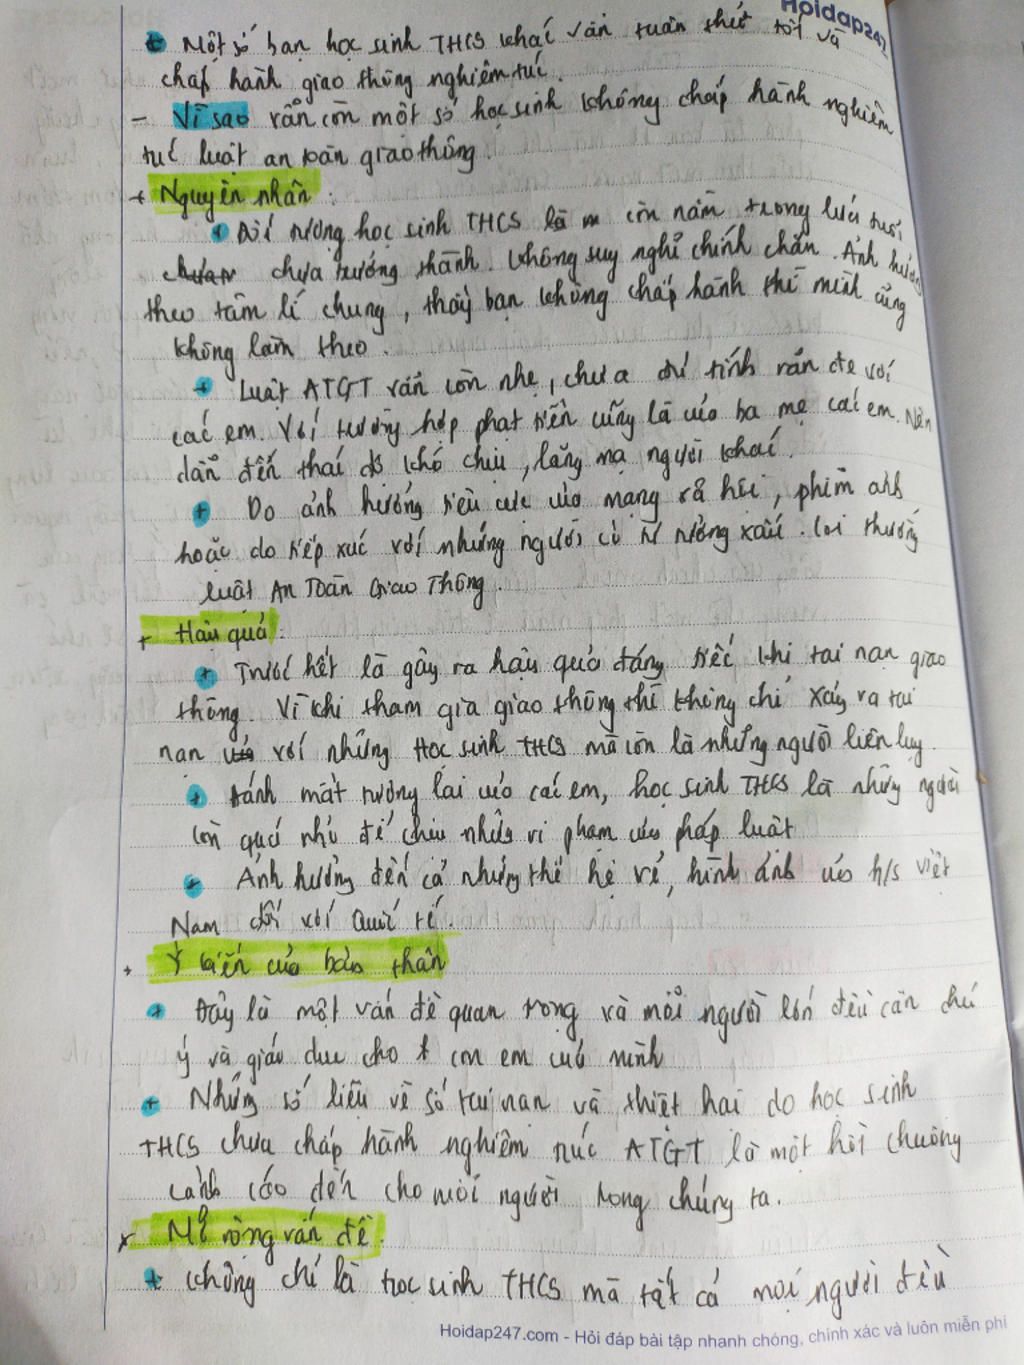 Hoidap247
+ Một số bạn học sinh THCS khác vẫn tuân thủ tốt và
chấp hành giao thông nghiêm túc.
- Vì sao vẫn còn một số học sinh không chấp hành nghiêm
túc luật an toàn giao thông.
+ Nguyên nhân :
+ Đối tượng học sinh THCS là còn nằm trong lứa tuổi
chưa trưởng thành. Không suy nghĩ chính chắn. Ảnh hưởng
theo tâm lí chung, thấy bạn không chấp hành thì mình cũng
không làm theo.
+ Luật ATGT vẫn còn nhẹ, chưa đủ tính răn đe với
các em. Với trường hợp phạt tiền cũng là của ba mẹ các em. Nên
dẫn đến thái độ khó chịu, lăng mạ người khác.
+ Do ảnh hưởng tiêu cực của mạng xã hội, phim ảnh
hoặc do tiếp xúc với những người có tư tưởng xấu. Coi thường
luật An Toàn Giao Thông.
+ Hậu quả :
+ Trước hết là gây ra hậu quả đáng tiếc khi tai nạn giao
thông. Vì khi tham gia giao thông thì không chỉ xảy ra tai
nạn với những Học sinh THCS mà còn là những người liên lụy.
+ Đánh mất tương lai của các em, học sinh THCS là những người
còn quá nhỏ để chịu những vi phạm của pháp luật
+ Ảnh hưởng đến cả những thế hệ về, hình ảnh của h/s Việt
Nam đối với Quốc tế.
+ Ý kiến của bản thân
+ Đây là một vấn đề quan trọng và mỗi người lớn đều cần chú
ý và giáo dục cho con em của mình
+ Những số liệu về số tai nạn và thiệt hại do học sinh
THCS chưa chấp hành nghiêm túc ATGT là một hồi chuông
cảnh cáo đến cho mỗi người trong chúng ta.
* Mở rộng vấn đề.
+ Không chỉ là học sinh THCS mà tất cả mọi người đều
Hoidap247.com - Hỏi đáp bài tập nhanh chóng, chính xác và luôn miễn phí